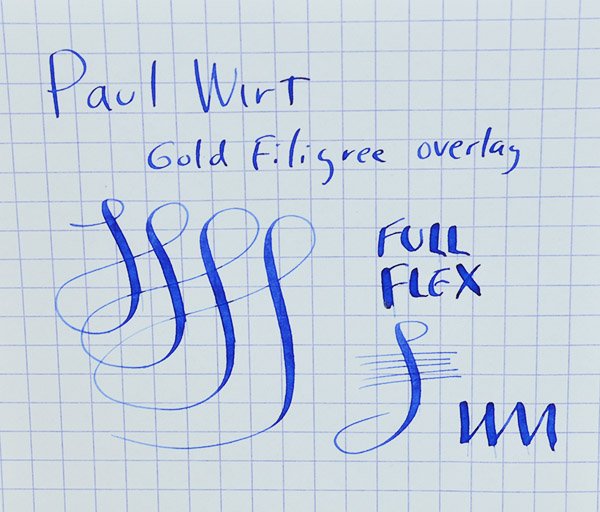 Paul Wirt
Gold Filigree overlay
FULL
FLEX